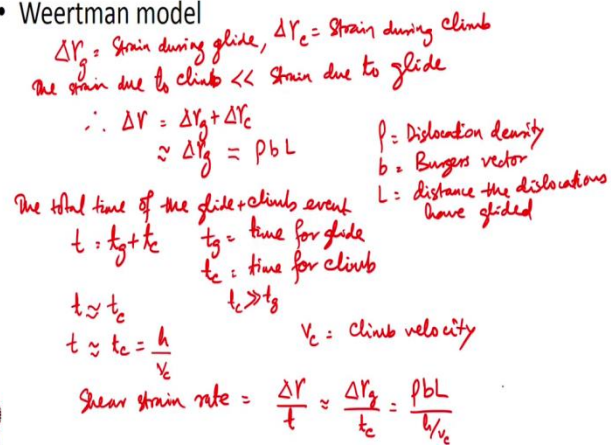 • Weertman model
Δγg = Strain during glide, Δγc = Strain during climb
The strain due to climb << Strain due to glide
∴ Δγ = Δγg + Δγc
≈ Δγg = ρbL
ρ = Dislocation density
b = Burgers vector
L = distance the dislocations
have glided
The total time of the glide+climb event
t = tg + tc
tg = time for glide
tc = time for climb
tc >> tg
t ≈ tc
t ≈ tc = h/vc
vc = Climb velocity
Shear strain rate = Δγ/t ≈ Δγg/tc = ρbL/(h/vc)